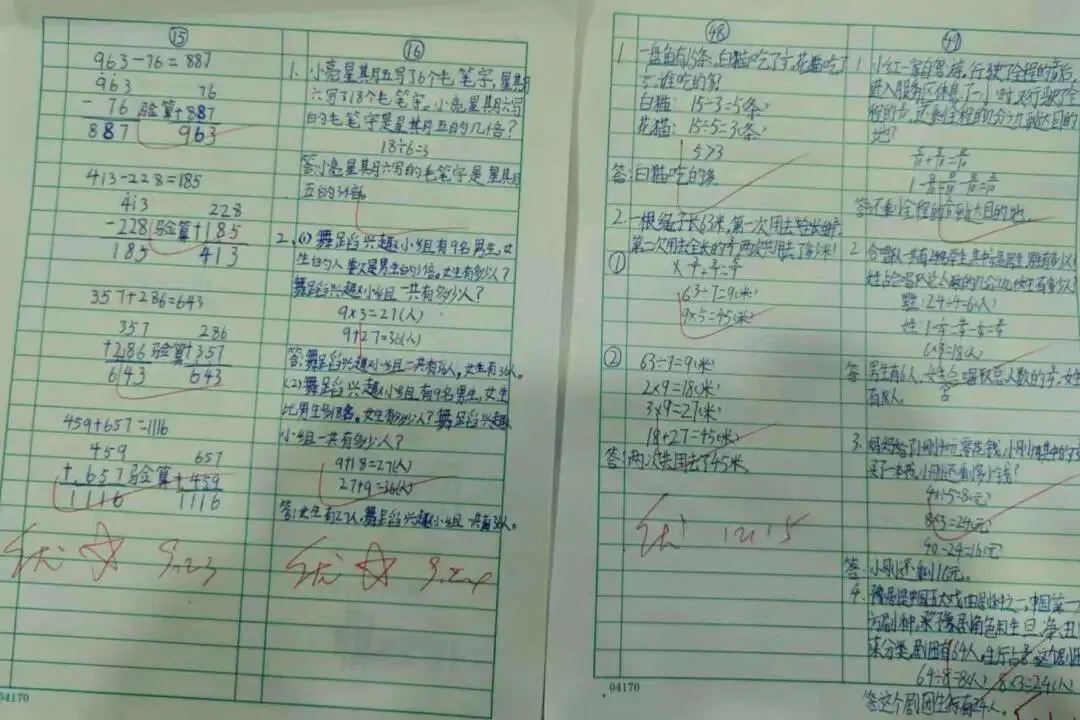 15
963-76=887
963 76
- 76 验算+887
887 963
413-228=185
413 228
-228 验算+185
185 413
357+286=643
357 286
+286 验算+357
643 643
459+657=1116
459 657
+657 验算+459
1116 1116
优 9.23
16
1. 小亮星期五写了6个毛笔字,星期
六写了18个毛笔字。小亮星期六写
的毛笔字是星期五的几倍?
18÷6=3
答:小亮星期六写的毛笔字是星期
五的3倍。
2. (1)舞蹈兴趣小组有9名男生,女
生的人数是男生的3倍。女生有多少人?
舞蹈兴趣小组一共有多少人?
9×3=27(人)
9+27=36(人)
答:舞蹈兴趣小组一共有36人,女生有36人。
(2)舞蹈兴趣小组有9名男生,女生
比男生多18名。女生有多少人?舞蹈兴趣
小组一共有多少人?
9+18=27(人)
27+9=36(人)
答:女生有27人,舞蹈兴趣小组一共有36人。
优 9.24
48
1 一盘鱼有15条,白猫吃了,花猫吃了
,谁吃的多?
白猫: 15÷3=5(条)
花猫: 15÷5=3(条)
5>3
答:白猫吃的多
2. 一根绳子长63米,第一次用去全长的,
第二次用去全长的,两次共用去了多少米?
①
63÷7=9(米)
9×5=45(米)
② 63÷7=9(米)
2×9=18(米)
3×9=27(米)
18+27=45(米)
答:两次共用去了45米
优 12.15
49
1 小红一家自驾游,行驶了全程的后,
进入服务区休息了一小时,又行驶了全
程的,还剩全程的几分之几到达目的
地?
答:还剩全程的到达目的地。
2 合唱队一共有24名学生,其中是男生,男生有多少人?
女生占合唱队总人数的几分之几?女生有多少人?
男生:24÷4=6(人)
女生:
6×3=18(人)
答 男生有6人,女生占合唱队总人数的,女生
有18人。
3. 妈妈给了小刚40元零花钱,小刚用其中的
买了一本书,小刚还剩多少钱?
40÷5=8(元)
8×3=24(元)
40-24=16(元)
答:小刚还剩16元。
4. 豫剧是中国五大戏曲剧种之一,中国第一
方剧种,豫剧角色用生旦、净、丑
来分类,剧团有64人,生行占,这个剧团
64÷8=8(人) 8×3=24(人)
答:这个剧团生行有24人。
04170
.04170